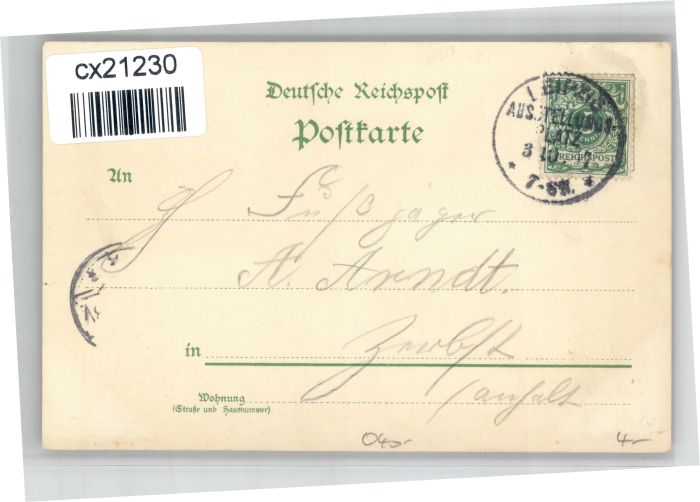 cx21230
Deutsche Reichspost
Postkarte
LEIPZIG
AUSSTELLUNGS
PLATZ
7-8N.
REICHSPOST
An
H
Fußjäger
A. Arndt.
in Zerbst
Wohnung
(Straße und Hausnummer)
Anhalt
4-